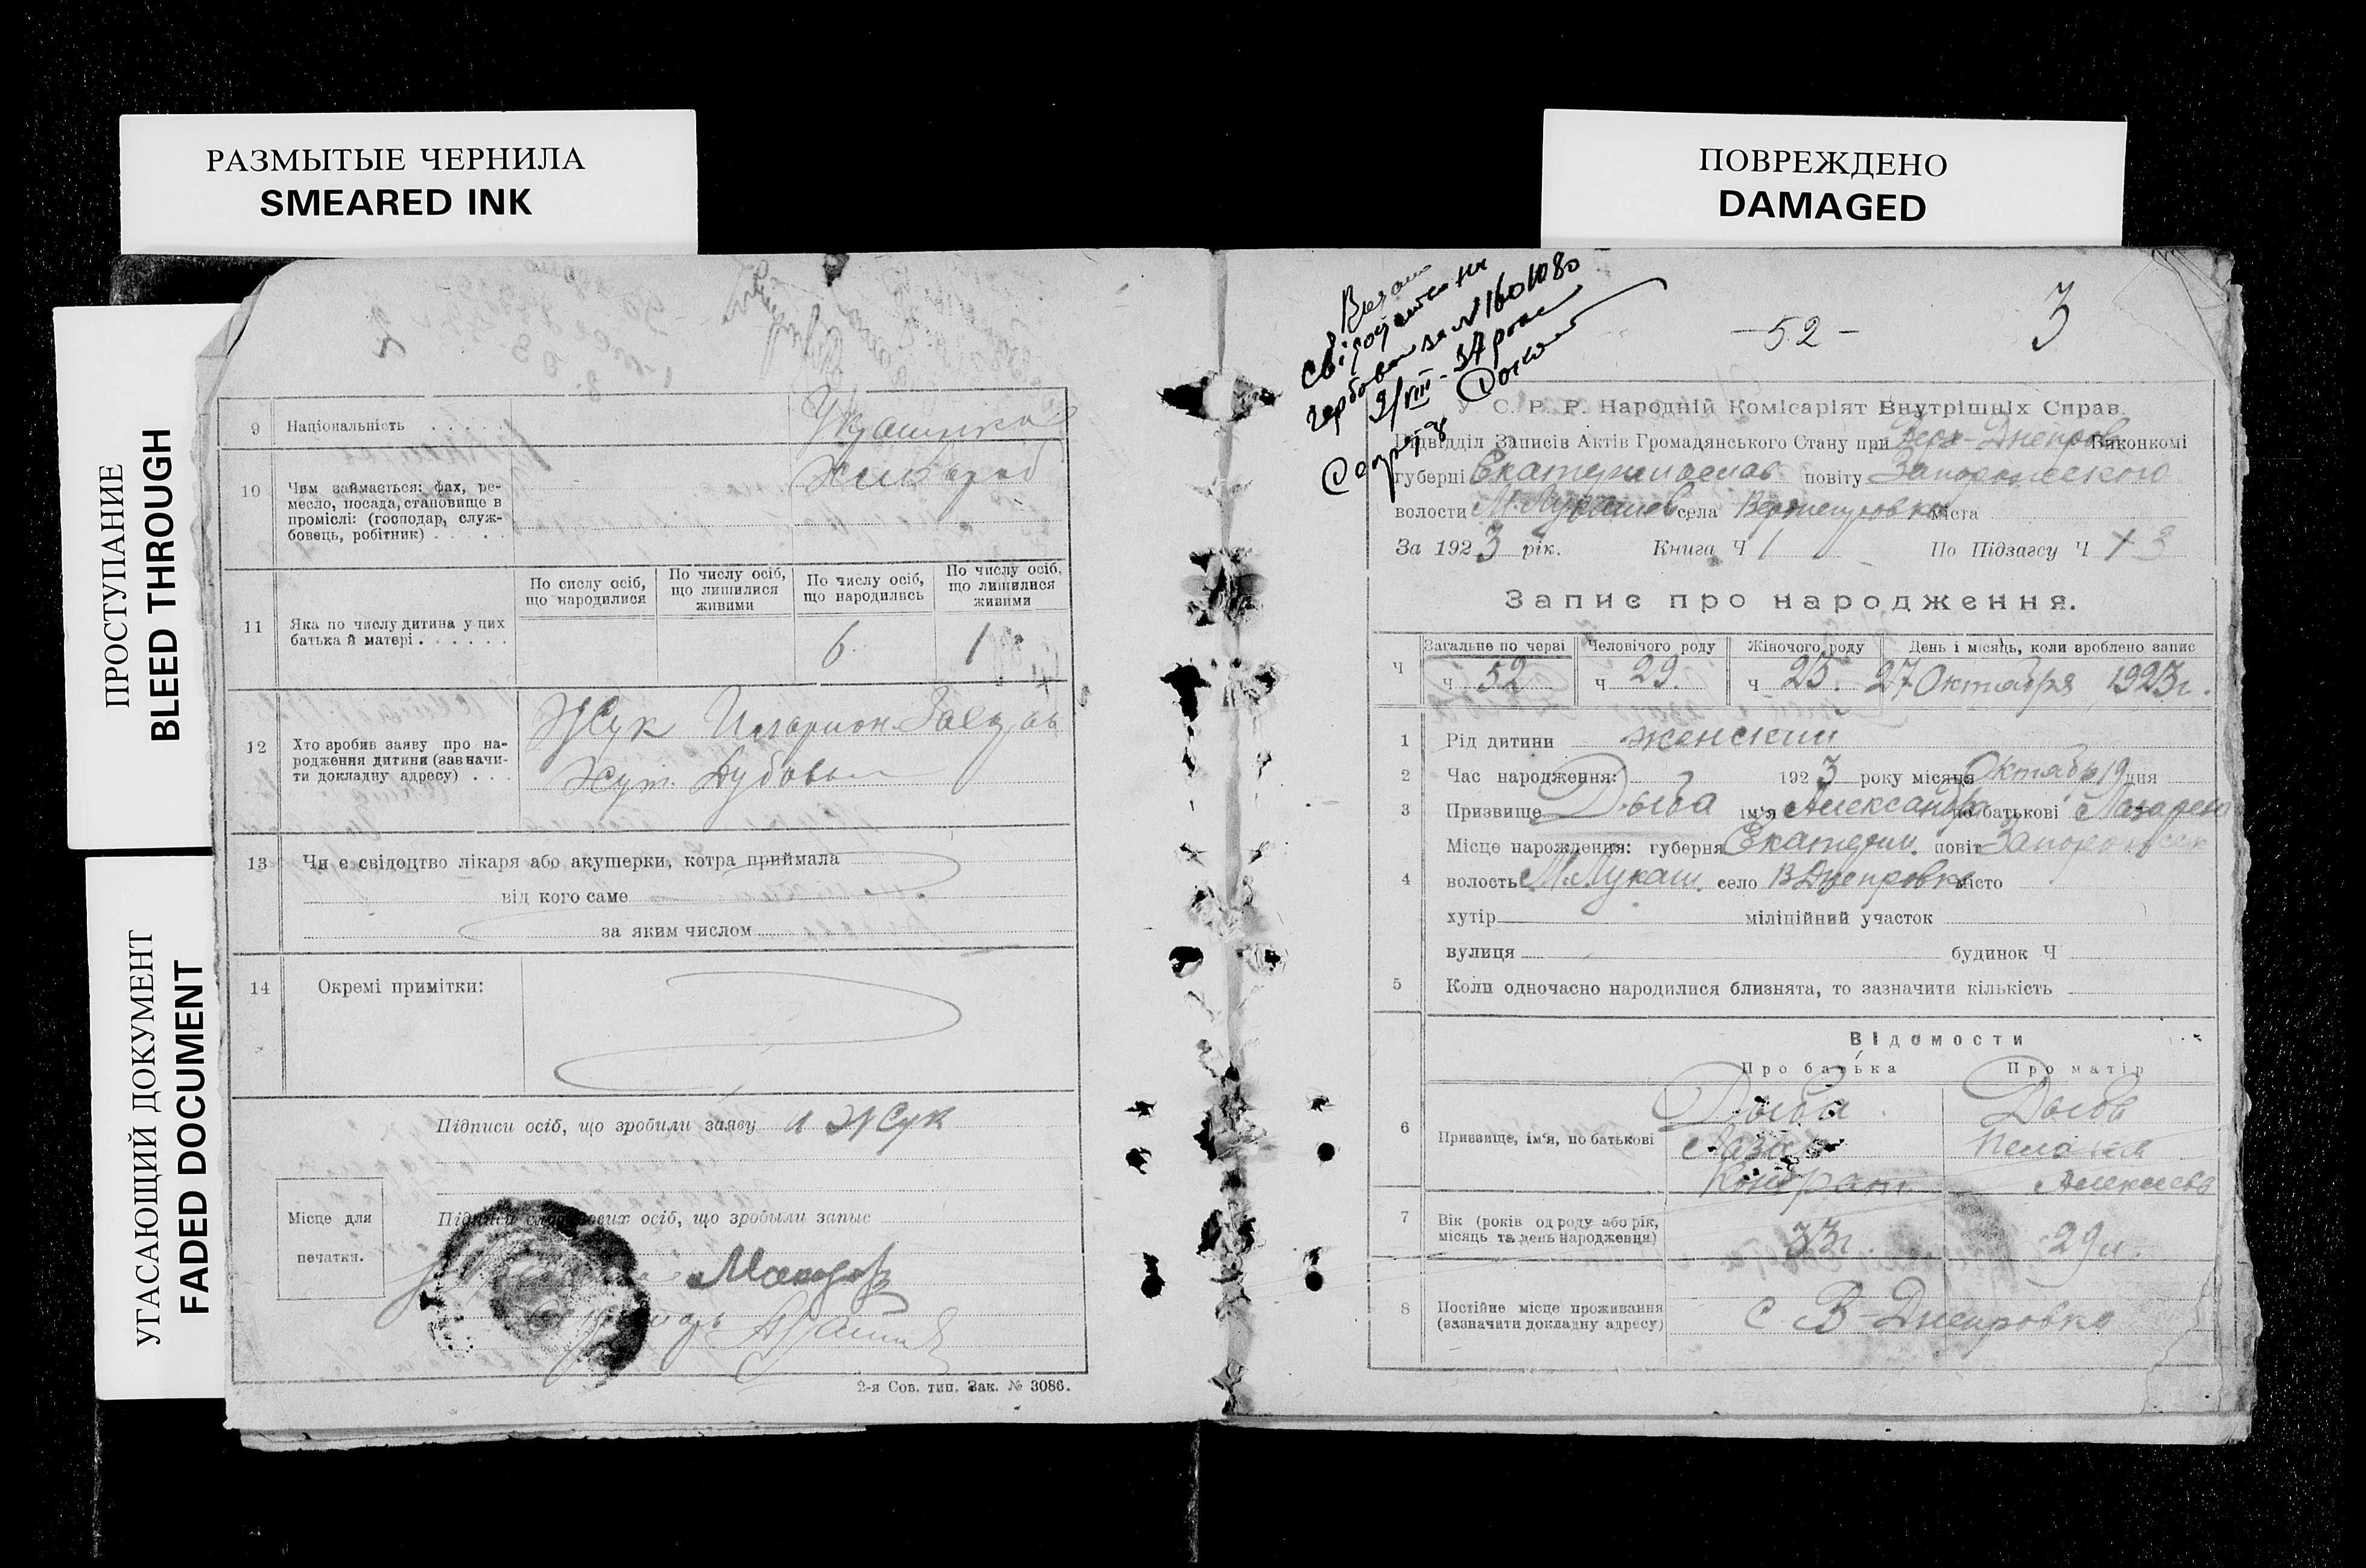 РАЗМЫТЫЕ ЧЕРНИЛА
SMEARED INK
ПОВРЕЖДЕНО
DAMAGED
ПРОСТУПАНИЕ
BLEED THROUGH
УГАСАЮЩИЙ ДОКУМЕНТ
FADED DOCUMENT
9 Національність . . . . .
10 Чим займається: фах, ре-
месло, посада, становище в
проміслі: (господар, служ-
бовець, робітник) . . . . .
По числу осіб, що народилися
По числу осіб, що лишилися живими
По числу осіб, що народились
По числу осіб, що лишилися живими
11 Яка по числу дитина у цих
батька й матері . . . . . .
6 1
12 Хто зробив заяву про на-
родження дитини (зазначи-
ти докладну адресу) . . .
Жук Иларион
Хут. Дубовый
13 Чи є свідоцтво лікаря або акушерки, котра приймала
від кого саме
за яким числом
14 Окремі примітки:
Підписи осіб, що зробили заяву И Жук
Місце для
печатки.
Підписи осіб, що зробыли запыс
Секретарь
2-я Сов. тип. Зак. № 3086.
Видано
свідоцтво на
гербовом за № 1601080
9/VIII - 37 року
— 52 — 3
У. С. Р. Р. Народній Комісаріят Внутрішніх Справ.
Підвідділ Записів Актів Громадянського Стану при Верх-Днепров Виконкомі
губерні Екатеринослав повіту Запорожского
волости М. Лукашев села Верднепровка міста
За 1923 рік. Книга Ч 1 По Підзагсу Ч
Запис про народження.
Загальне по черзі Человічого роду Жіночого роду День і місяць, коли зроблено запис
Ч Ч 52 Ч 29. Ч 23. 27 Октября 1923 г.
1 Рід дитини женский
2 Час народження: 1923 року місяця Октябр 19 дня
3 Призвище Дыба ім'я Александра по батькові Лазарева
Місце нарождения: губерня Екатерин. повіт Запорожск
4 волость М. Лукаш. село В Днепровка місто
хутір міліційний участок
вулиця будинок Ч
5 Коли одночасно народилися близнята, то зазначити кількість
Відомости
Про батька Про матір
6 Призвище, ім'я, по батькові
Дыба Дыба
Лазар Пелагия
Кондрат. Алексеева
7 Вік (років од роду або рік,
місяць та день народження)
33 г. 29 л.
8 Постійне місце проживання
(зазначити докладну адресу)
с. В-Днепровка